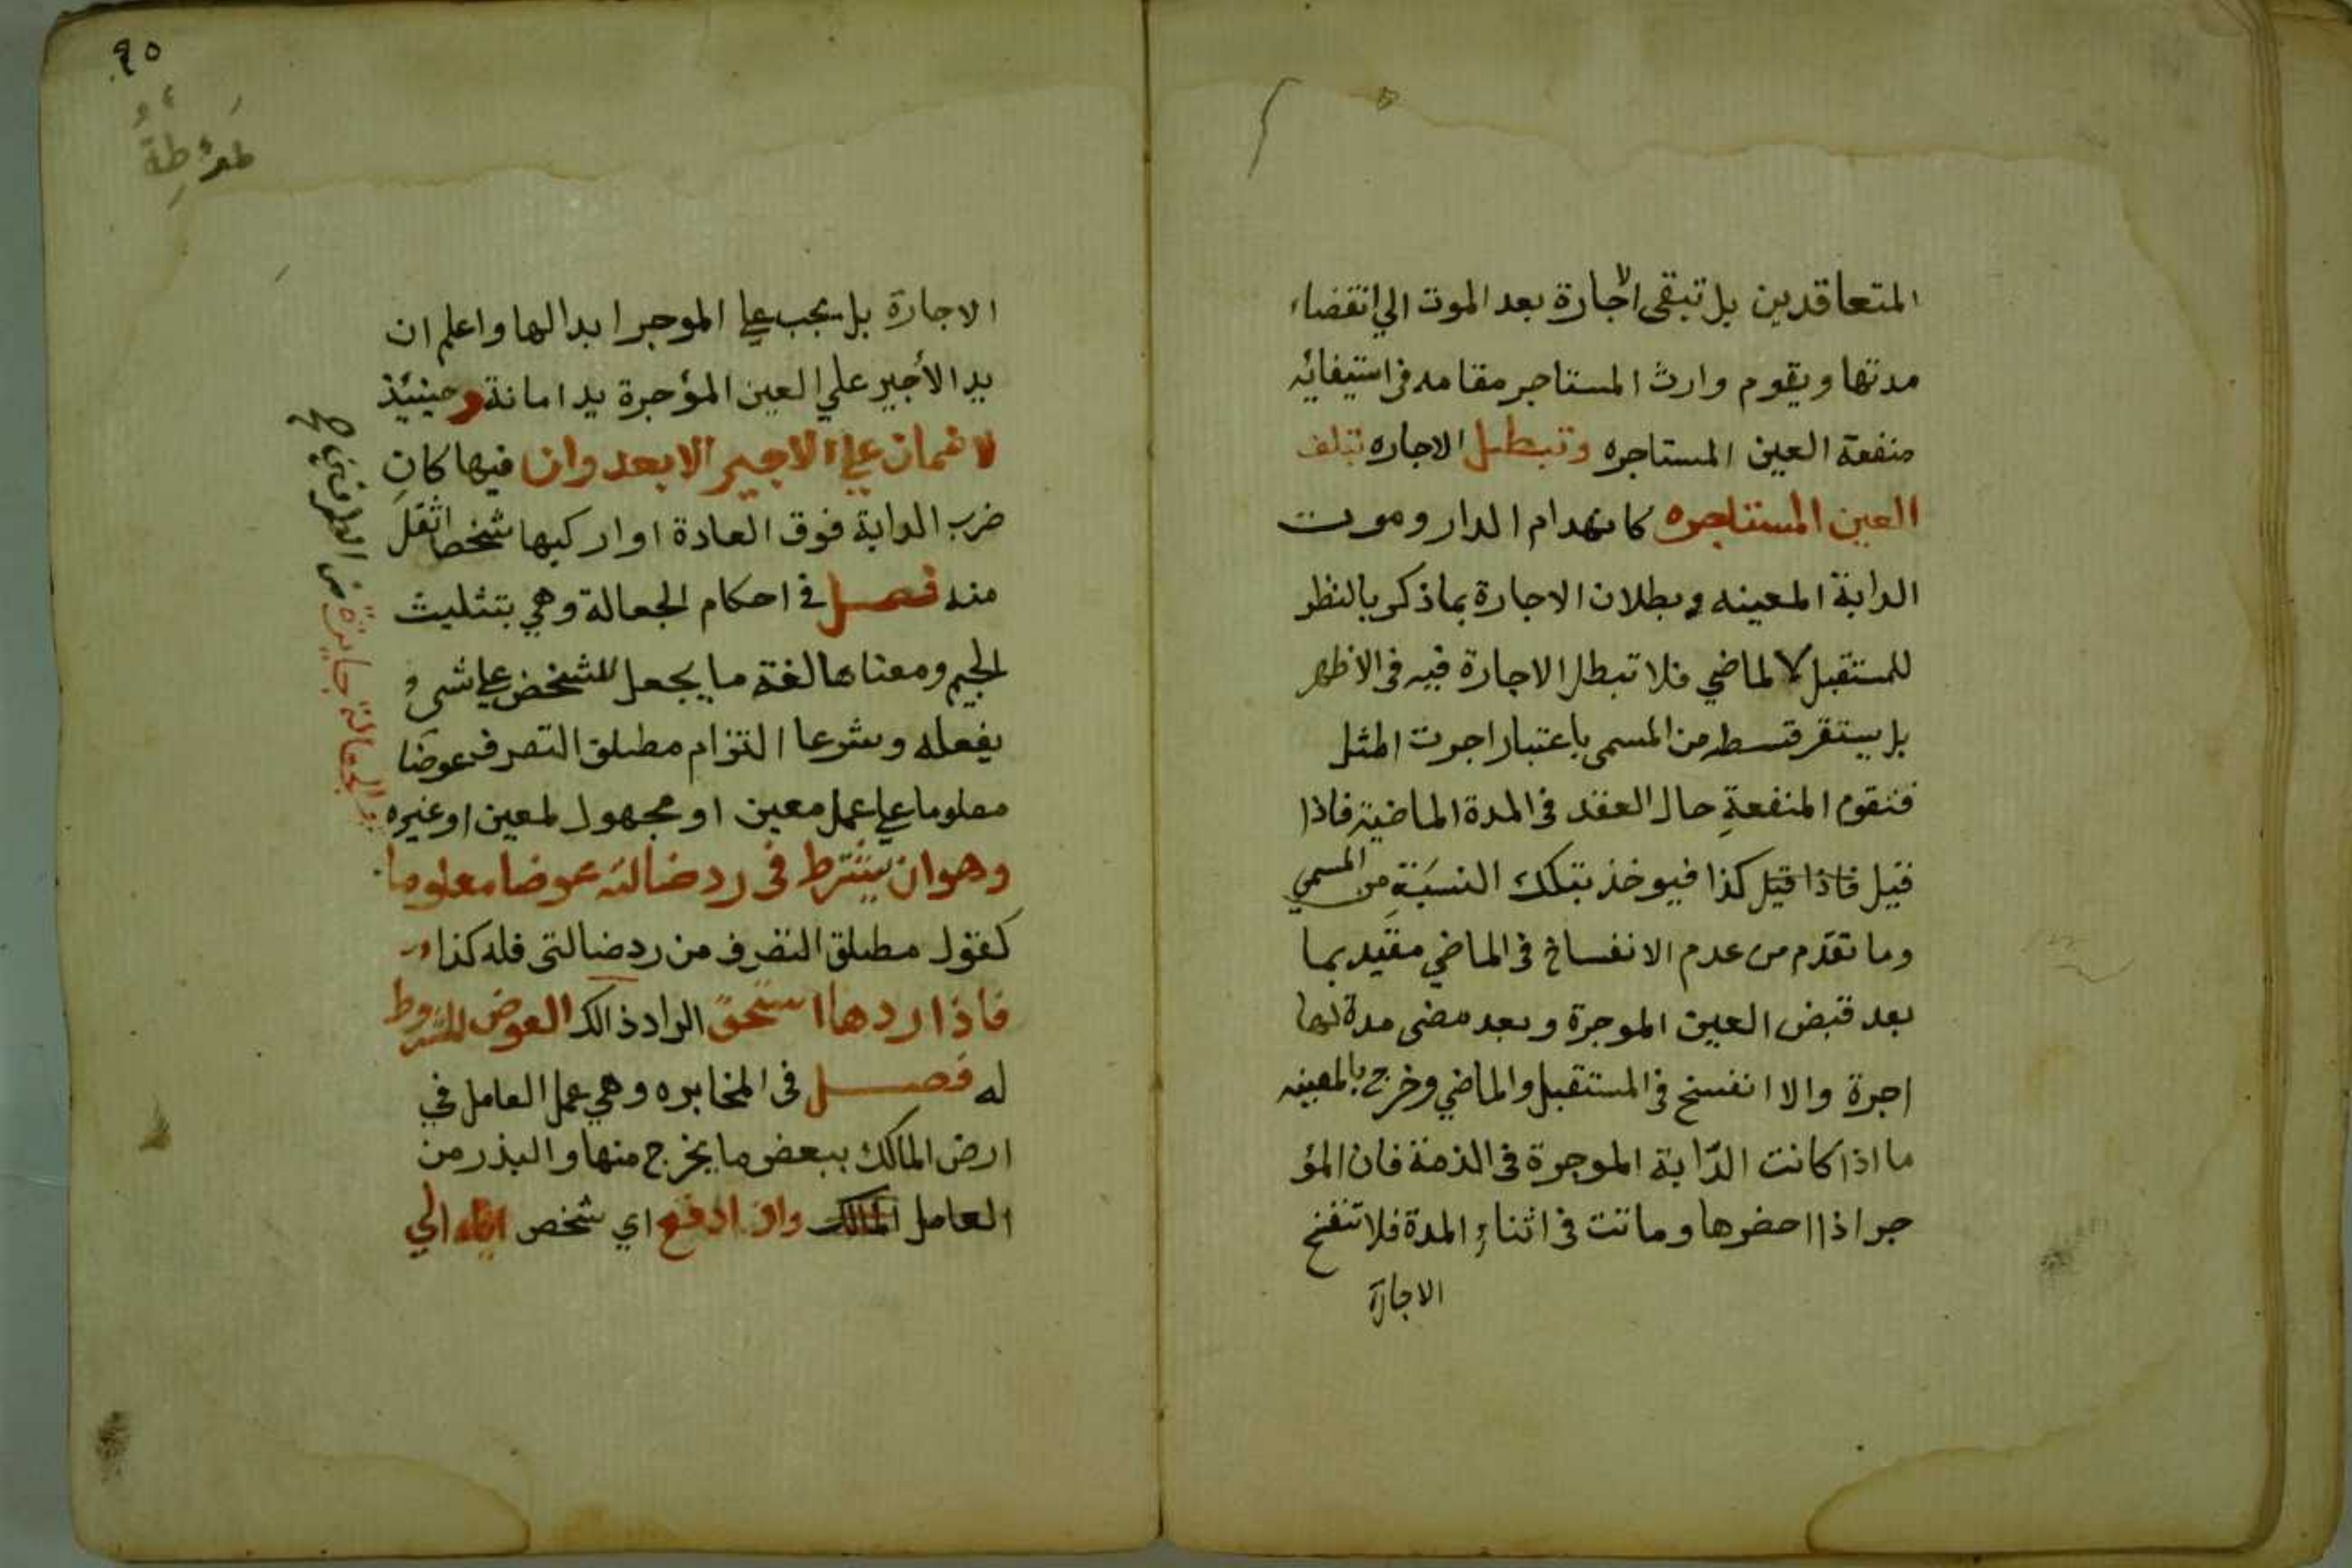 المتعاقدين بل تبقى الاجارة بعد الموت الي انقضاء
مدتها ويقوم وارث المستاجر مقامه في استيفائه
منفعة العين المستاجره وتبطل الاجاره بتلف
العين المستاجره كانهدام الدار وموت
الدابة المعينه وبطلان الاجارة بماذكر بالنظر
للمستقبل لا لماضي فلا تبطل الاجارة فيه في الاظهر
بل يستقر قسطه من المسمى باعتبار اجرت المثل
فتقوم المنفعة حال العقد في المدة الماضية فاذا
قيل فاذا قيل كذا فيوخذ بتلك النسبة من المسمي
وما تقدم من عدم الانفساخ في الماضي مقيد بما
بعد قبض العين الموجرة وبعد مضى مدة لها
اجرة والا انفسخ في المستقبل والماضي وخرج بالمعينه
ما اذا كانت الدّابة الموجرة في الذمة فان المؤ
جر اذا احضرها وماتت في اثناء المدة فلا تنفسخ
الاجارة
٩٥
الاجارة بل يجب علي الموجر ابدالها واعلم ان
يد الأجير علي العين المؤجرة يد امانة وحينيئذ
لا ضمان علي الاجير الا بعدوان فيها كان
ضرب الدابة فوق العادة او اركبها شخصا اثقل
منه فصل في احكام الجعالة وهي بتثليث
الجيم ومعناها لغة ما يجعل للشخص علي شيء
يفعله وشرعا التزام مطلق التصرف عوضا
معلوما علي عمل معين او مجهول لمعين او غيره
وهو ان يشترط في رد ضالته عوضا معلوما
كقول مطلق التصرف من رد ضالتي فله كذا
فاذا ردها استحق الراد ذالك العوض المشروط
له فصل في المخابره وهي عمل العامل في
ارض المالك ببعض ما يخرج منها والبذر من
العامل المالك وان ادفع اي شخص الي
والجعالة جايزة من الطرفين